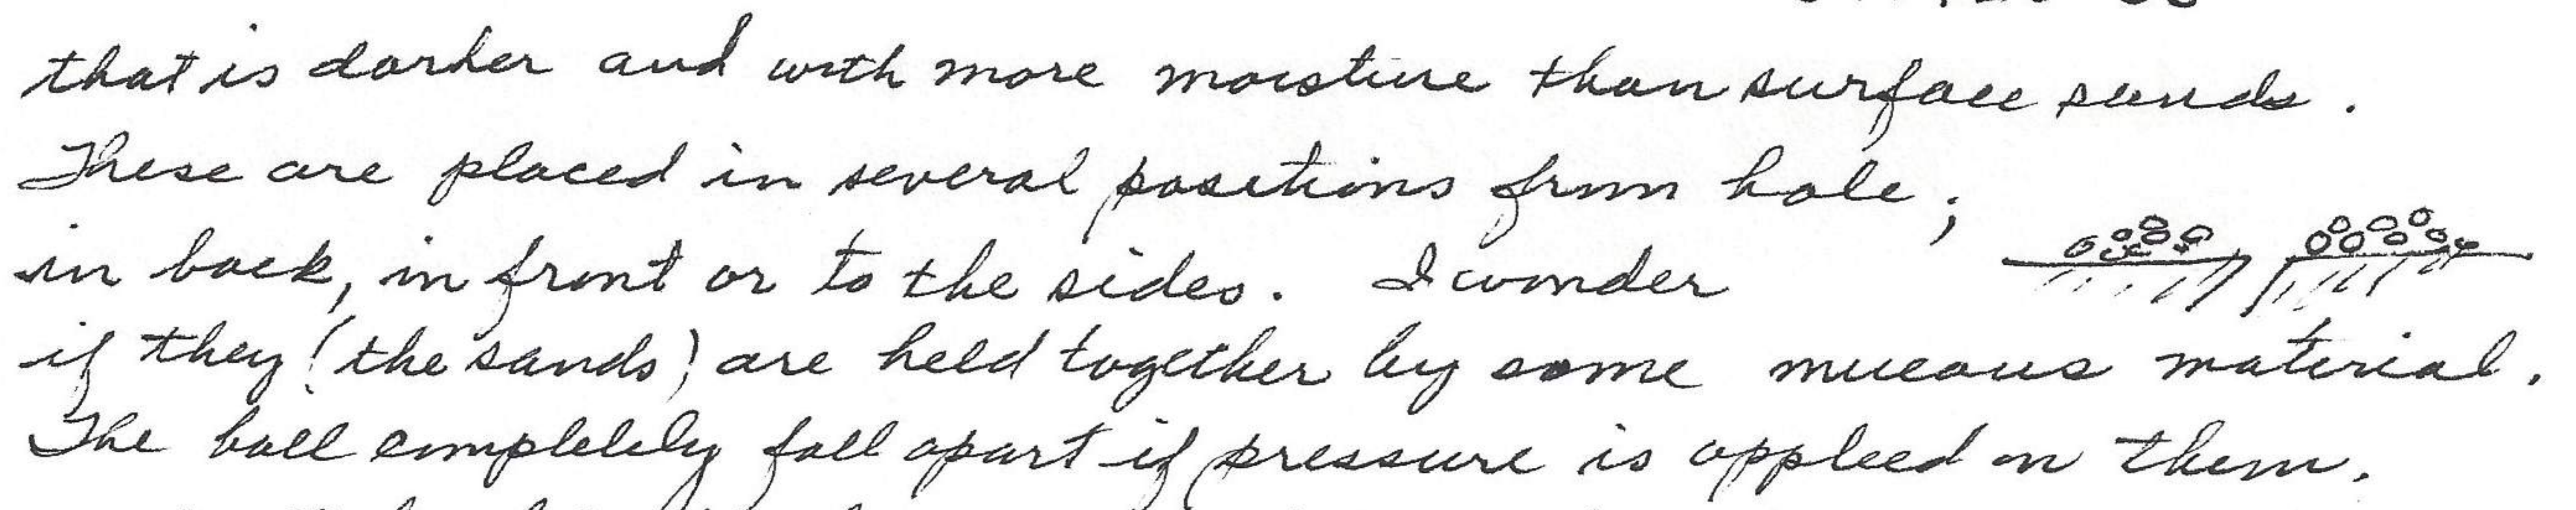 that is darker and with more moisture than surface sands.
These are placed in several positions from hole;
in back, in front or to the sides. I wonder
if they (the sands) are held together by some mucous material.
The ball completely fall apart if pressure is applied on them.